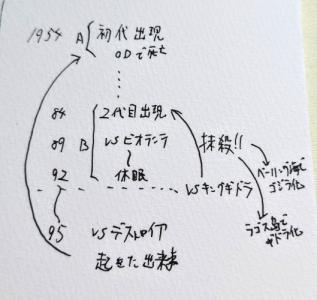 1954 A 初代出現
ODで死亡
84 2代目出現
89 B VSビオランテ
92 休眠
抹殺!!
VSキングギドラ
ベーリング海で
ゴジラ化
ラゴス島で
ギドラ化
95 VSデストロイア
起きた出来事